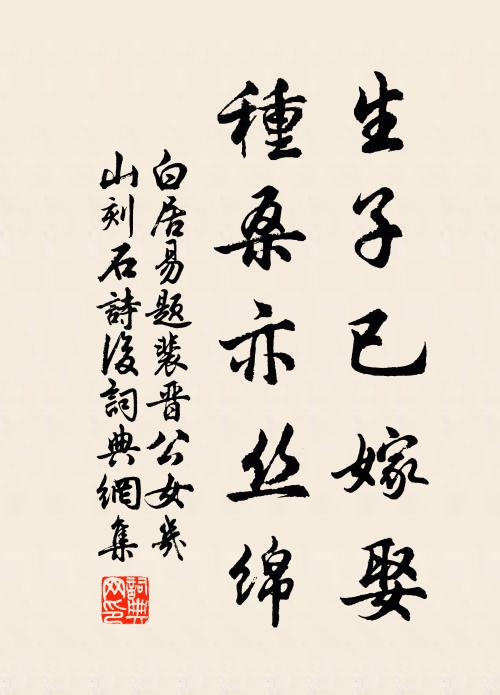 生子已嫁娶
種桑亦丝绵
白居易题裴晋公女幾
山刻石詩後詞典網集
詞典
网印